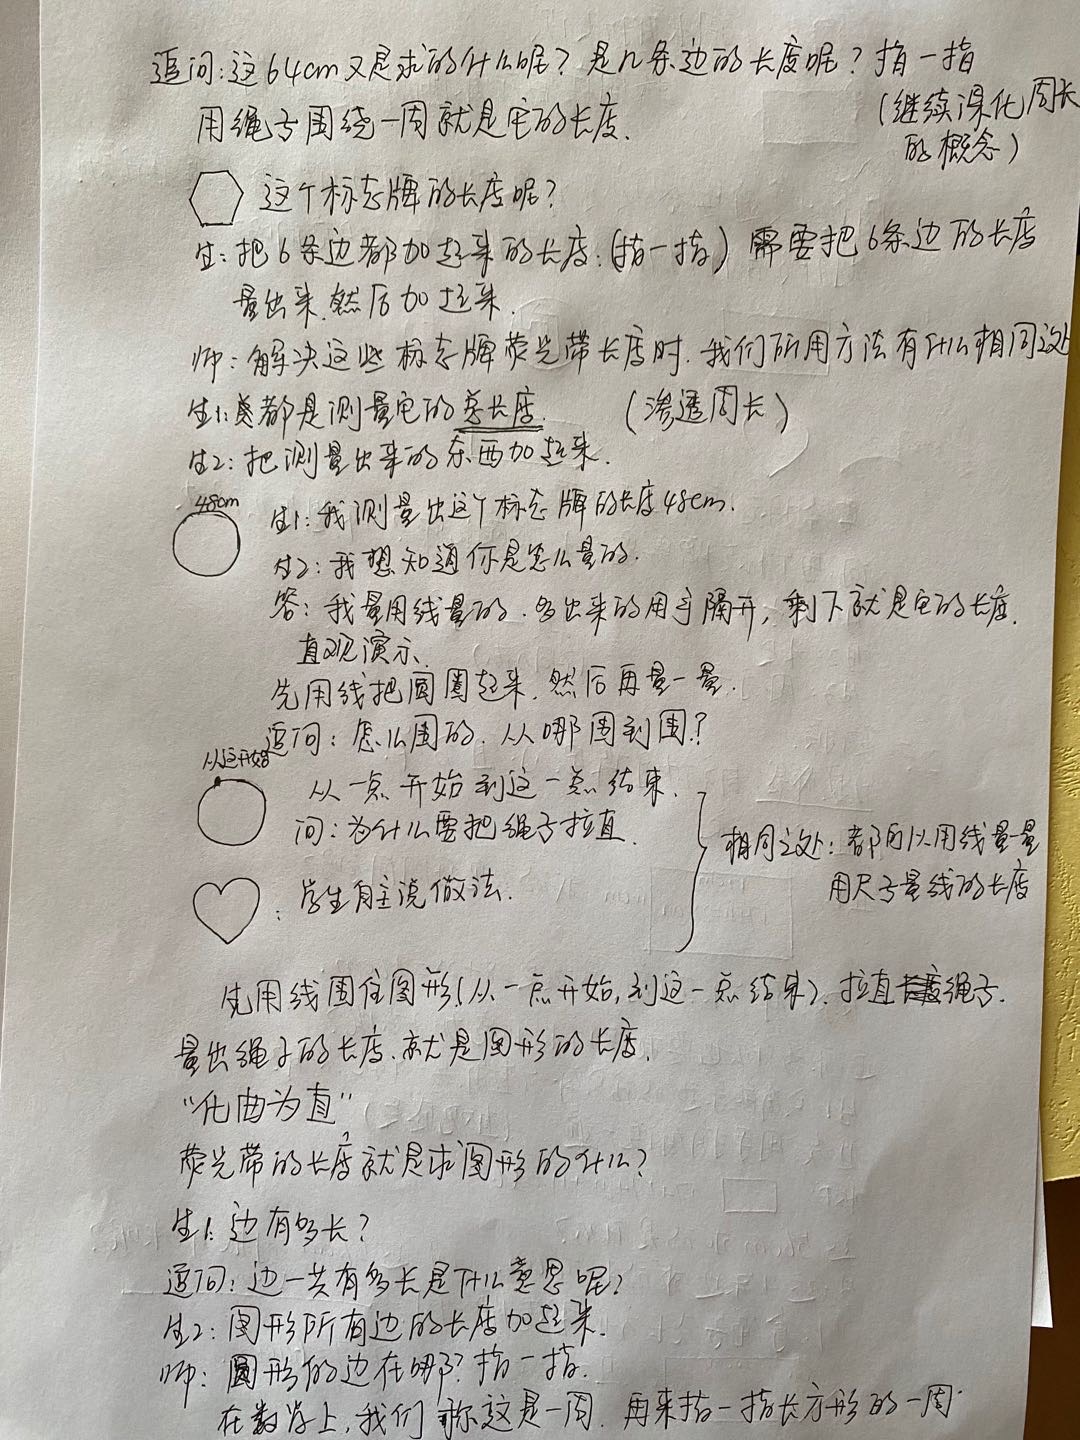 追问:这64cm又是求的什么呢?是几条边的长度呢?指一指
(继续深化周长的概念)
用绳子围绕一周就是它的长度.
这个标志牌的长度呢?
生:把6条边都加起来的长度.(指一指)需要把6条边的长度
量出来.然后加起来.
师:解决这些标志牌荧光带长度时.我们所用方法有什么相同之处
生1:都是测量它的总长度. (渗透周长)
生2:把测量出来的东西加起来.
48cm
生1:我测量出这个标志牌的长度48cm.
生2:我想知道你是怎么量的.
答:我量用线量的.多出来的用手隔开,剩下就是它的长度.
直观演示.
先用线把圆圈起来.然后再量一量.
追问:怎么围的.从哪围到围?
从这开始
从一点开始到这一点结束.
问:为什么要把绳子拉直.
相同之处:都可以用线量量
用尺子量线的长度
:学生自主说做法.
先用线围住图形(从一点开始,到这一点结束).拉直绳子.
量出绳子的长度.就是图形的长度.
“化曲为直”
荧光带的长度就是求图形的什么?
生1:边有多长?
追问:边一共有多长是什么意思呢?
生2:图形所有边的长度加起来.
师:图形的边在哪?指一指.
在数学上,我们称这是一周.再来指一指长方形的一周.